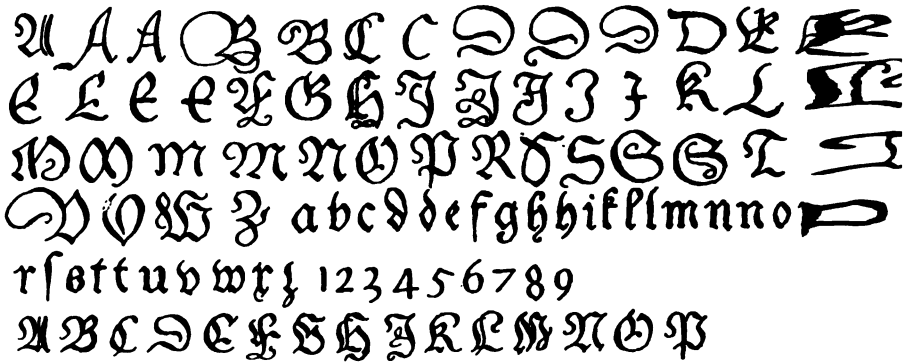 A A A B B C C D D D D E
E E E E F G H I J J J J K L
M M M M N O P R S S S T
V V W Z a b c d d e f g h h i k l l m n n o
r ſ s t t u v w x z 1 2 3 4 5 6 7 8 9
A B C D E F G H J K L M N O P